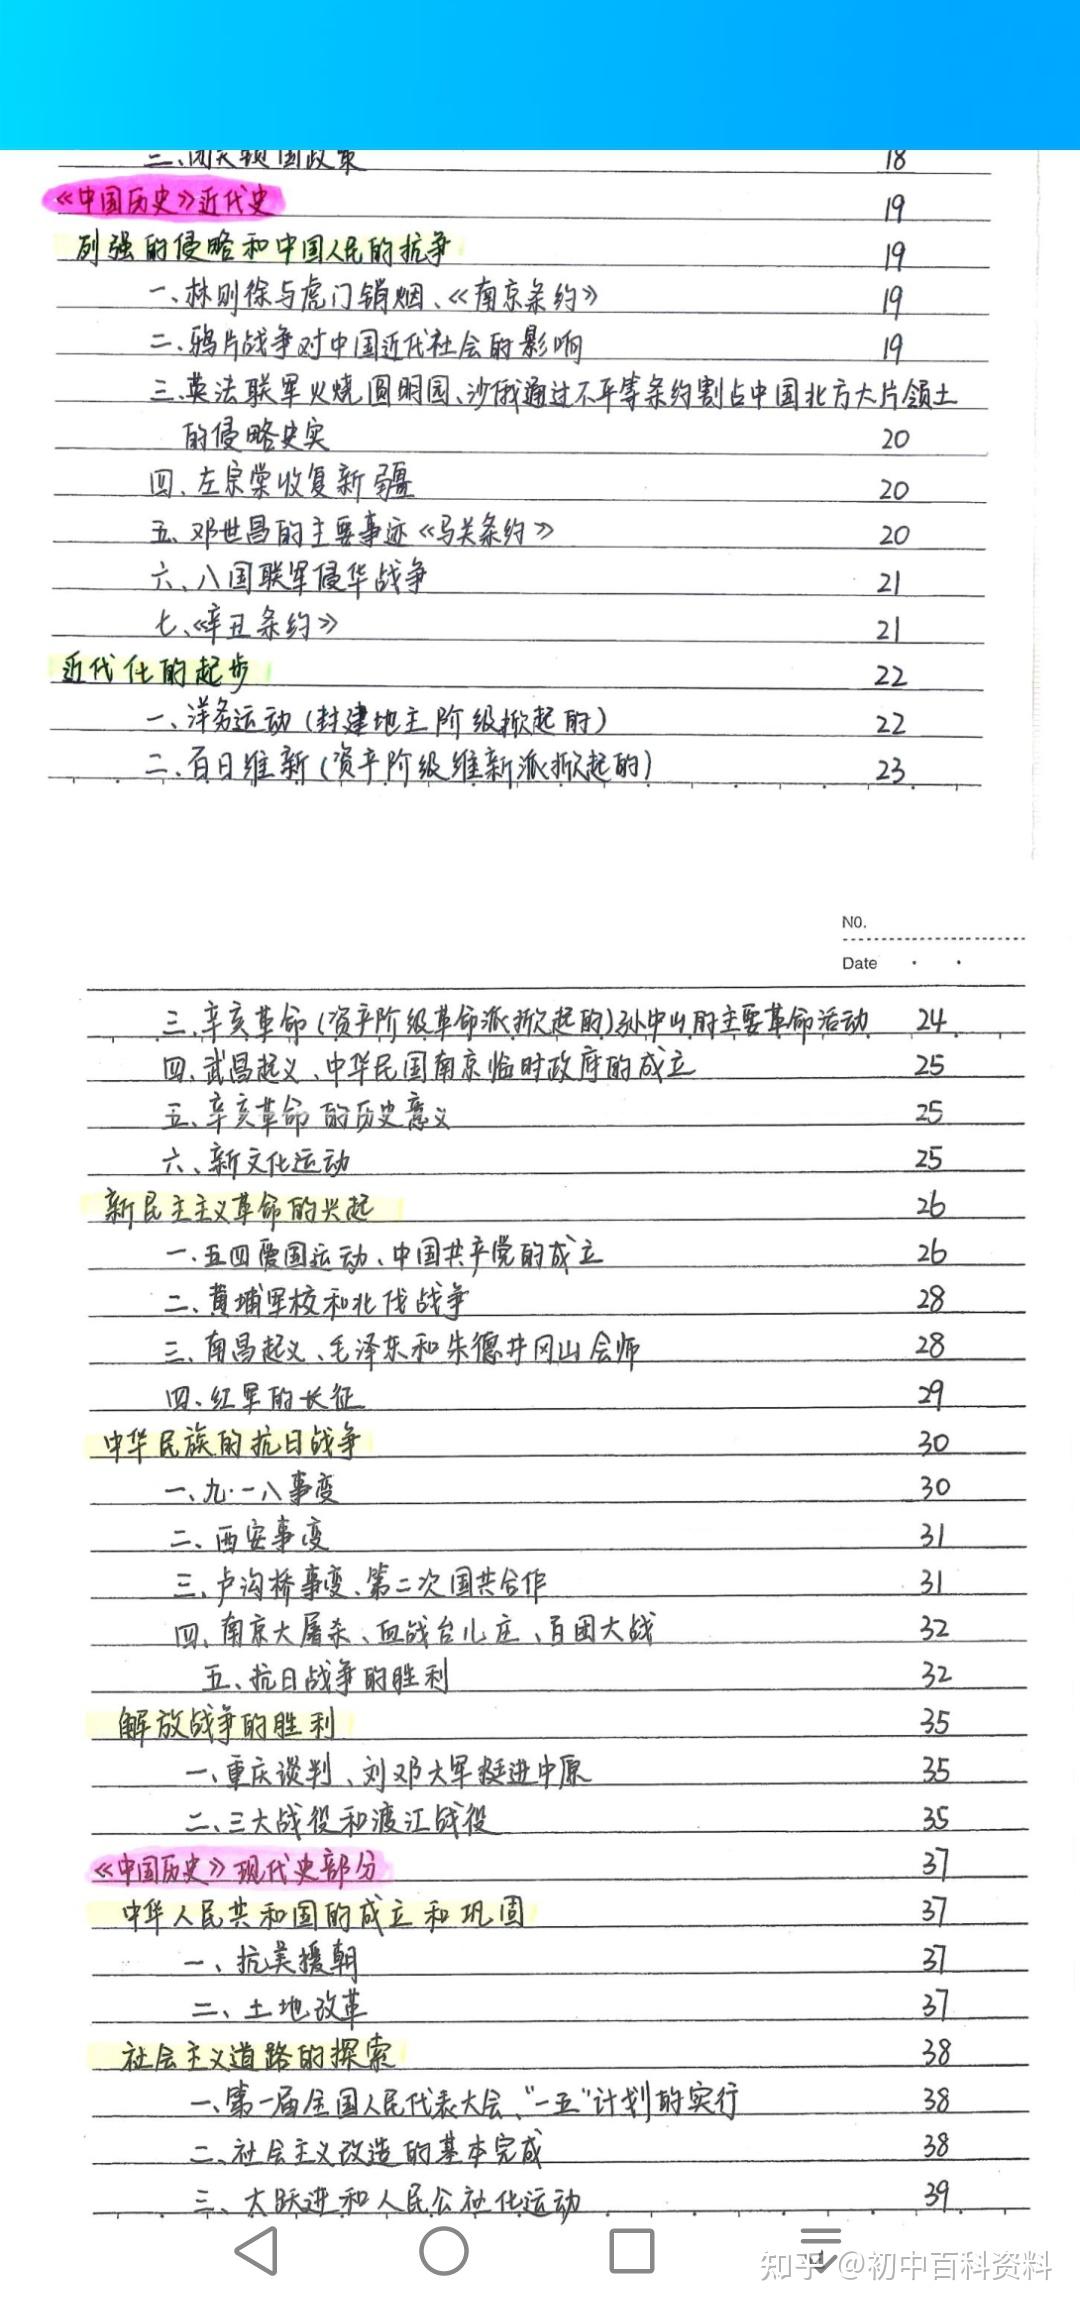 三、闭关锁国政策 18
《中国历史》近代史 19
列强的侵略和中国人民的抗争 19
一、林则徐与虎门销烟、《南京条约》 19
二、鸦片战争对中国近代社会的影响 19
三、英法联军火烧圆明园、沙俄通过不平等条约割占中国北方大片领土
的侵略史实 20
四、左宗棠收复新疆 20
五、邓世昌的主要事迹《马关条约》 20
六、八国联军侵华战争 21
七、《辛丑条约》 21
近代化的起步 22
一、洋务运动(封建地主阶级掀起的) 22
二、百日维新(资产阶级维新派掀起的) 23
NO.
Date
三、辛亥革命(资产阶级革命派掀起的)孙中山的主要革命活动 24
四、武昌起义、中华民国南京临时政府的成立 25
五、辛亥革命的历史意义 25
六、新文化运动 25
新民主主义革命的兴起 26
一、五四爱国运动、中国共产党的成立 26
二、黄埔军校和北伐战争 28
三、南昌起义、毛泽东和朱德井冈山会师 28
四、红军的长征 29
中华民族的抗日战争 30
一、九·一八事变 30
二、西安事变 31
三、卢沟桥事变、第二次国共合作 31
四、南京大屠杀、血战台儿庄、百团大战 32
五、抗日战争的胜利 32
解放战争的胜利 35
一、重庆谈判、刘邓大军挺进中原 35
二、三大战役和渡江战役 35
《中国历史》现代史部分 37
中华人民共和国的成立和巩固 37
一、抗美援朝 37
二、土地改革 37
社会主义道路的探索 38
一、第一届全国人民代表大会、"一五"计划的实行 38
二、社会主义改造的基本完成 38
三、大跃进和人民公社化运动 39
知乎 @初中百科资料